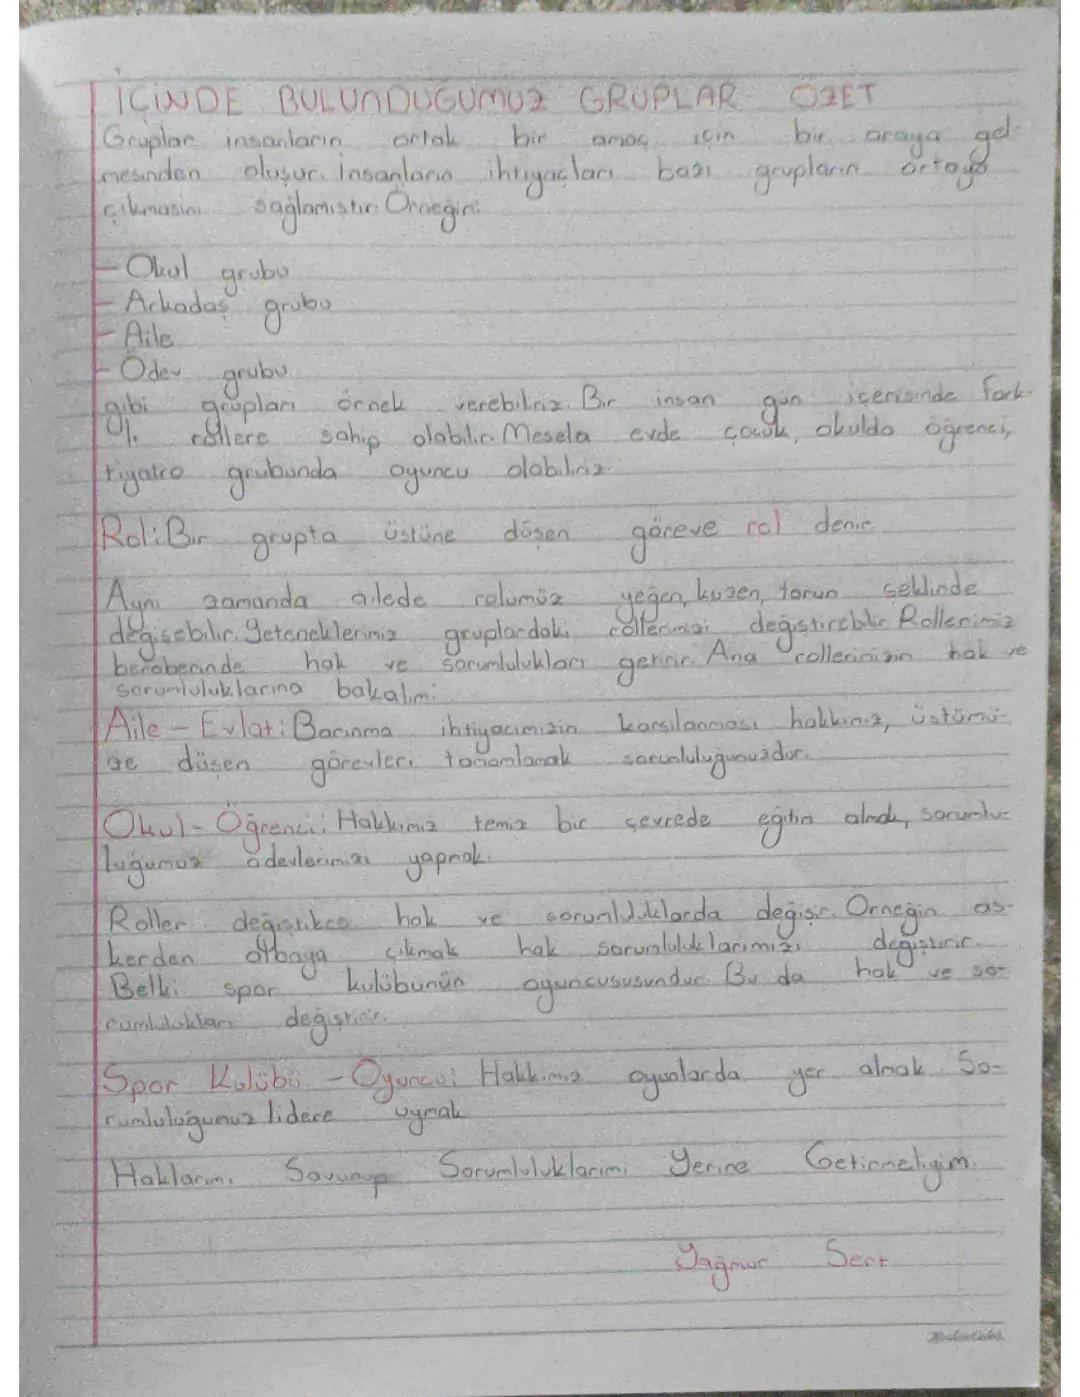 İÇİNDE BULUNDUĞUMUZ GRUPLAR ÖZET
Gruplar insanların ortak bir amaç için bir araya gel-
mesinden oluşur. İnsanların ihtiyaçları bazı grupların ortaya
çıkmasını sağlamıştır. Örneğin:
- Okul grubu
- Arkadaş grubu
- Aile
- Ödev grubu
gibi grupları örnek verebiliriz. Bir insan gün içerisinde fark-
lı rollere sahip olabilir. Mesela evde çocuk, okulda öğrenci,
tiyatro grubunda oyuncu olabiliriz.
Rol: Bir grupta üstüne düşen göreve rol denir.
Aynı zamanda ailede rolümüz yeğen, kuzen, torun şeklinde
değişebilir. Yeteneklerimiz gruplardaki rollerimizi değiştirebilir. Rollerimiz
beraberinde hak ve sorumlulukları getirir. Ana rollerimizin hak ve
sorumluluklarına bakalım:
Aile - Evlat: Barınma ihtiyacımızın karşılanması hakkımız, üstümü-
ze düşen görevleri tamamlamak sorumluluğumuzdur.
Okul - Öğrenci: Hakkımız temiz bir çevrede eğitim almak, sorumlu-
luğumuz ödevlerimizi yapmak.
Roller değiştikce hak ve sorumluluklarda değişir. Örneğin as-
kerden çıkmak hak sorumluluklarımızı değiştirir.
Belki spor kulübünün oyuncususundur. Bu da hak ve so-
rumlulukları değiştirir.
Spor Kulübü - Oyuncu: Hakkımız oyunlarda yer almak So-
rumluluğumuz lidere uymak
Haklarımı Savunup Sorumluluklarımı Yerine Getirmeliyim.
Yağmur Sert